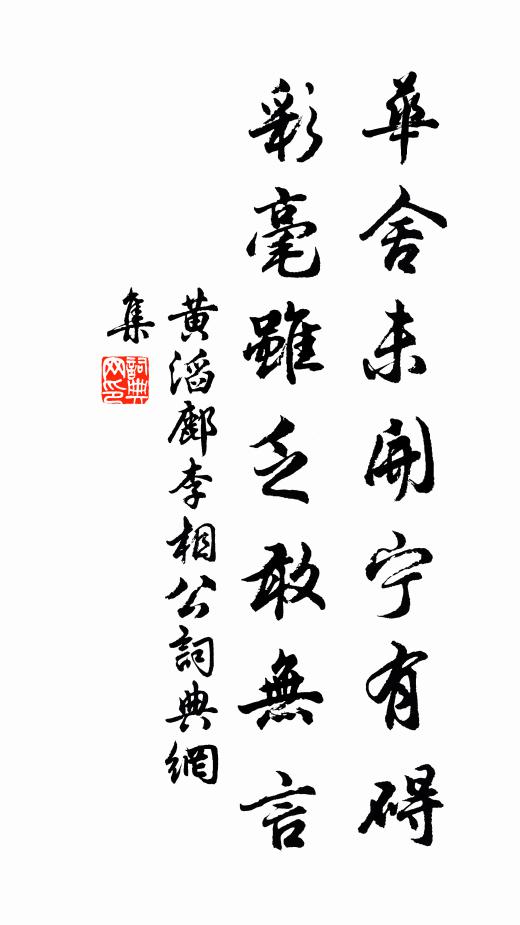 華舍未開宁有碍
彩毫雖乏敢無言
黄滔鄜李相公詞典網
集
詞典网印